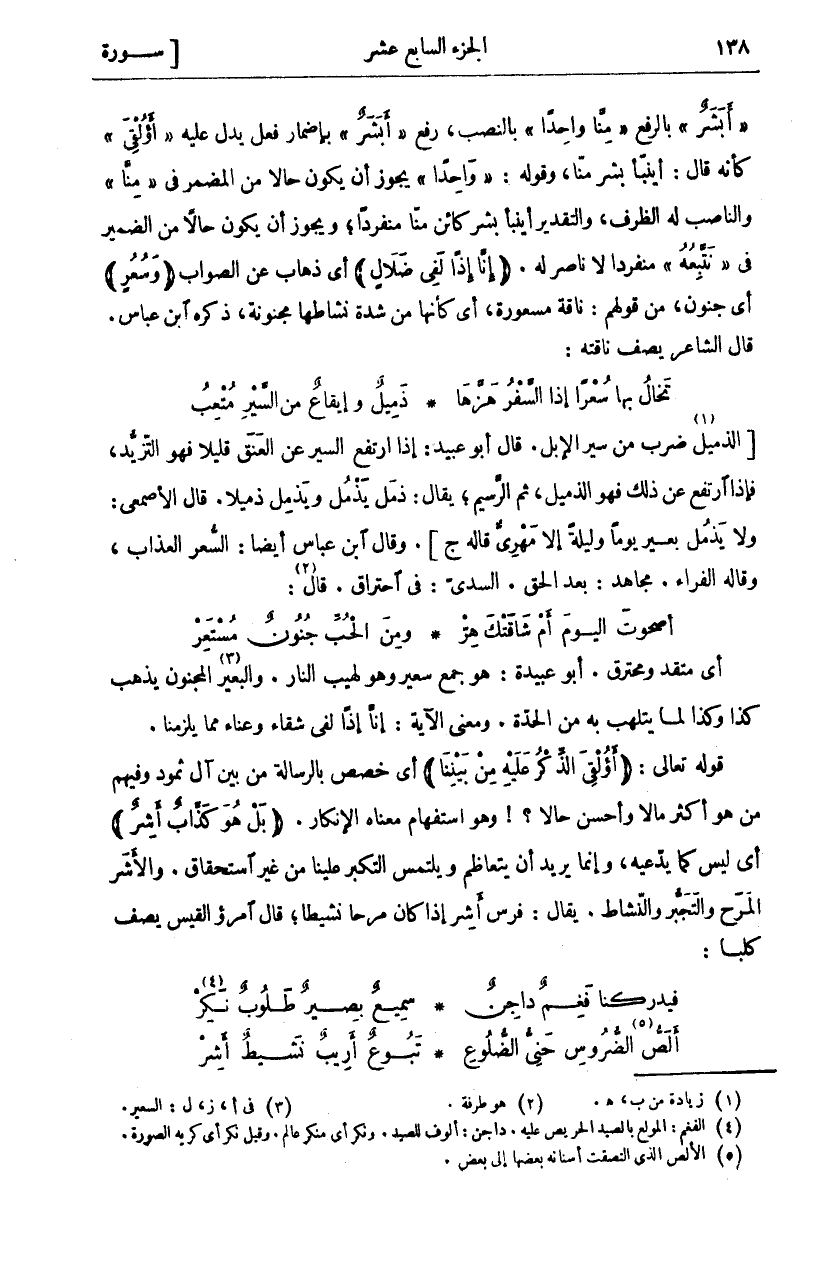 ١٣٨ الجزء السابع عشر [ ســورة
« أَبَشَرٌ » بالرفع « مِنَّا واحِدًا » بالنصب، رفع « أَبَشَرٌ » بإضمار فعل يدل عليه « أَؤُلْقِىَ »
كأنه قال : أينبّأ بشر منّا، وقوله : « وَاحِدًا » يجوز أن يكون حالا من المضمر فى « مِنَّا »
والناصب له الظرف، والتقدير أينبأ بشر كائن منّا منفردًا؛ ويجوز أن يكون حالًا من الضمير
فى « نَتَّبِعُهُ » منفردا لا ناصر له . ﴿ إِنَّا إِذًا لَفِى ضَلَالٍ ﴾ أى ذهاب عن الصواب ﴿ وَسُعُرٍ ﴾
أى جنون، من قولهم : ناقة مسعورة، أى كأنها من شدة نشاطها مجنونة، ذكره آبن عباس.
قال الشاعر يصف ناقته :
تَخَالُ بها سُعْرًا إذا السَّفْرُ هَزَّهَا * ذَمِيلٌ و إيقاعٌ من السَّيْرِ مُتْعِبُ
[ الذميل(١) ضرب من سير الإبل. قال أبو عبيد: إذا ارتفع السير عن العَنَق قليلا فهو التّزيُّد،
فإذا آرتفع عن ذلك فهو الذميل، ثم الرَّسِيم؛ يقال: ذمَل يَذْمُل ويَذمِل ذميلا. قال الأصمعى:
ولا يَذْمُل بعـير يوماً وليلةً إلا مَهْرِىٌّ قاله ج ] . وقال آبن عباس أيضا : السُّعر العذاب ،
وقاله الفراء . مجاهد : بعد الحق . السدىّ : فى آحتراق . قال(٢) :
أصحوتَ اليـومَ أَمْ شَاقَتْكَ هِرّ * ومِنَ الْحُبِّ جُنُونٌ مُسْتَعِرْ
أى متقد ومحترق . أبو عبيدة : هو جمع سعير وهو لهيب النار . والبعير(٣) المجنون يذهب
كذا وكذا لمـا يتلهب به من الحدّة . ومعنى الآية : إنا إذًا لفى شقاء وعناء مما يلزمنا .
قوله تعالى : ﴿ أَؤُلْقِىَ الذِّكْرُ عَلَيْهِ مِنْ بَيْنِنَا ﴾ أى خصص بالرسالة من بين آل ثمود وفيهم
من هو أكثر مالا وأحسن حالا ؟ ! وهو استفهام معناه الإنكار . ﴿ بَلْ هُوَ كَذَّابٌ أَشِرٌ ﴾
أى ليس كما يدّعيه، وإنما يريد أن يتعاظم ويلتمس التكبر علينا من غير آستحقاق . والأَشَر
المَرَح والتَّجَبُّر والنّشاط . يقال : فرس أَشِر إذا كان مرحا نشيطا؛ قال آمرؤ القيس يصف
كلبـا :
فيدركنا فَغِـمٌ داجِنٌ * سمِيعٌ بصِـيرٌ طَـلُوبٌ نَـكِرْ(٤)
أَلَصُّ(٥) الضُّرُوسِ حَنِىُّ الضُّلُوعِ * تَبُـوعٌ أَرِيبٌ نَشـيطٌ أَشِرْ
(١) زيادة من ب، ﻫ . (٢) هو طرفة . (٣) فى أ ، ز، ل : السعير.
(٤) الفغم : المولع بالصيد الحريص عليه . داجن : ألوف للصيد . ونكر أى منكر عالم . وقيل نكر أى كريه الصورة .
(٥) الألص الذى التصقت أسنانه بعضها إلى بعض .